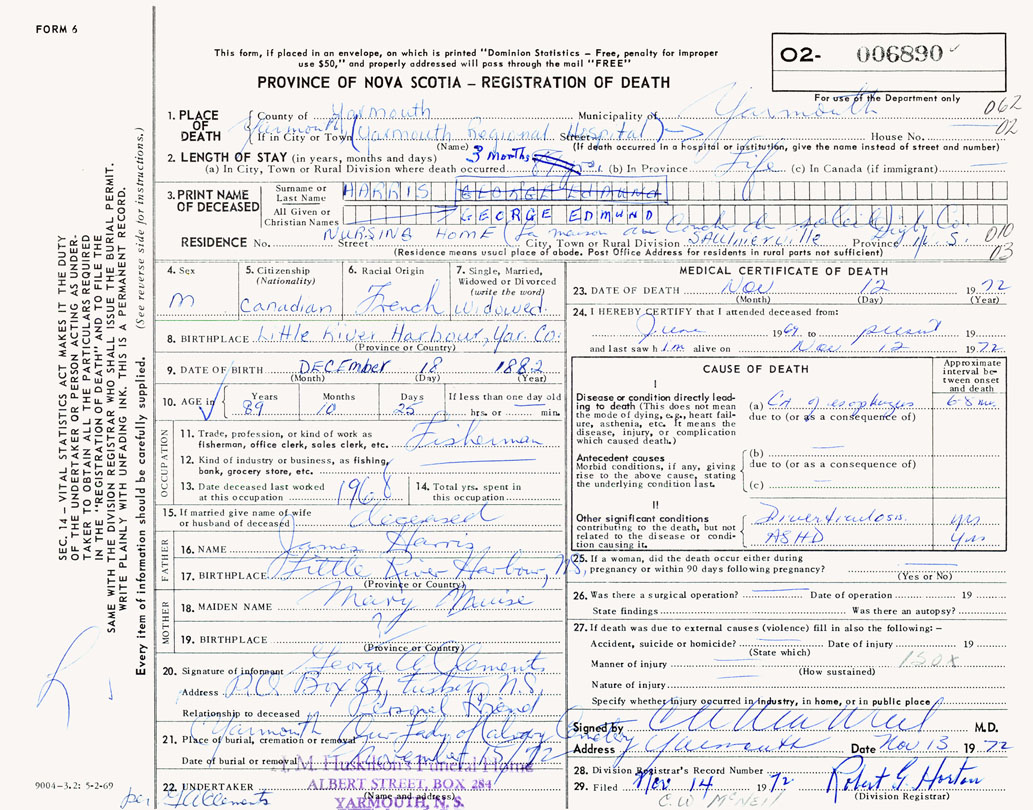 FORM 6
This form, if placed in an envelope, on which is printed "Dominion Statistics – Free, penalty for improper
use $50," and properly addressed will pass through the mail "FREE"
PROVINCE OF NOVA SCOTIA – REGISTRATION OF DEATH
O2- 006890
For use of the Department only
062
02
1. PLACE OF DEATH
County of Yarmouth Municipality of Yarmouth
If in City or Town Yarmouth (Yarmouth Regional Hospital) Street House No.
(Name) (If death occurred in a hospital or institution, give the name instead of street and number)
2. LENGTH OF STAY (in years, months and days) 3 Months
(a) In City, Town or Rural Division where death occurred (b) In Province Life (c) In Canada (if immigrant)
3. PRINT NAME OF DECEASED
Surname or Last Name HARRIS GEORGE EDMUND
All Given or Christian Names GEORGE EDMUND
RESIDENCE No. NURSING HOME (La maison au Coucher de soleil) Digby Co. 010
Street City, Town or Rural Division SAULNIERVILLE Province N.S. 03
(Residence means usual place of abode. Post Office Address for residents in rural parts not sufficient)
4. Sex M
5. Citizenship (Nationality) Canadian
6. Racial Origin French
7. Single, Married, Widowed or Divorced (write the word) Widowed.
8. BIRTHPLACE Little River Harbour, Yar. Co.
(Province or Country)
9. DATE OF BIRTH DECEMBER 18 1882
(Month) (Day) (Year)
10. AGE in Years 89 Months 10 Days 25 If less than one day old hrs. or min.
OCCUPATION
11. Trade, profession, or kind of work as fisherman, office clerk, sales clerk, etc. Fisherman
12. Kind of industry or business, as fishing, bank, grocery store, etc.
13. Date deceased last worked at this occupation 1968
14. Total yrs. spent in this occupation
15. If married give name of wife or husband of deceased deceased
FATHER
16. NAME James Harris
17. BIRTHPLACE Little River Harbour, N.S.
(Province or Country)
MOTHER
18. MAIDEN NAME Mary Muise
19. BIRTHPLACE ?
(Province or Country)
20. Signature of informant George A Clements
Address P.O. Box 51, Tusket, N.S.
Relationship to deceased Personal Friend
21. Place of burial, cremation or removal Yarmouth Our Lady of Calvary Cemetery
Date of burial or removal November 15/72
22. UNDERTAKER
H.M. Huskilson's Funeral Home
ALBERT STREET, BOX 284
YARMOUTH, N.S.
(Name and address)
per Clements
MEDICAL CERTIFICATE OF DEATH
23. DATE OF DEATH Nov 12 1972
(Month) (Day) (Year)
24. I HEREBY CERTIFY that I attended deceased from:
June 1969 to present 19
and last saw him alive on Nov 12 1972
CAUSE OF DEATH
Approximate interval between onset and death
I
Disease or condition directly leading to death (This does not mean the mode of dying, e.g., heart failure, asthenia, etc. It means the disease, injury, or complication which caused death.)
(a) Ca of esophagus 6-8 mo
due to (or as a consequence of)
Antecedent causes
Morbid conditions, if any, giving rise to the above cause, stating the underlying condition last.
(b)
due to (or as a consequence of)
(c)
II
Other significant conditions contributing to the death, but not related to the disease or condition causing it.
Diverticulosis yrs
ASHD yrs
25. If a woman, did the death occur either during pregnancy or within 90 days following pregnancy?
(Yes or No)
26. Was there a surgical operation? Date of operation 19
State findings Was there an autopsy?
27. If death was due to external causes (violence) fill in also the following: –
Accident, suicide or homicide? Date of injury 19
(State which)
Manner of injury 150X
(How sustained)
Nature of injury
Specify whether injury occurred in industry, in home, or in public place
Signed by M.D.
Address Yarmouth Date Nov 13 1972
28. Division Registrar's Record Number
29. Filed Nov. 14 1972 Robert G. Horton
C.W. McNeil (Division Registrar)
SEC. 14 – VITAL STATISTICS ACT MAKES IT THE DUTY
OF THE UNDERTAKER OR PERSON ACTING AS UNDER-
TAKER TO OBTAIN ALL THE PARTICULARS REQUIRED
IN THE "REGISTRATION OF DEATH" AND TO FILE THE
SAME WITH THE DIVISION REGISTRAR WHO SHALL ISSUE THE BURIAL PERMIT.
WRITE PLAINLY WITH UNFADING INK. THIS IS A PERMANENT RECORD.
Every item of information should be carefully supplied. (See reverse side for instructions.)
9004-3.2: 5-2-69